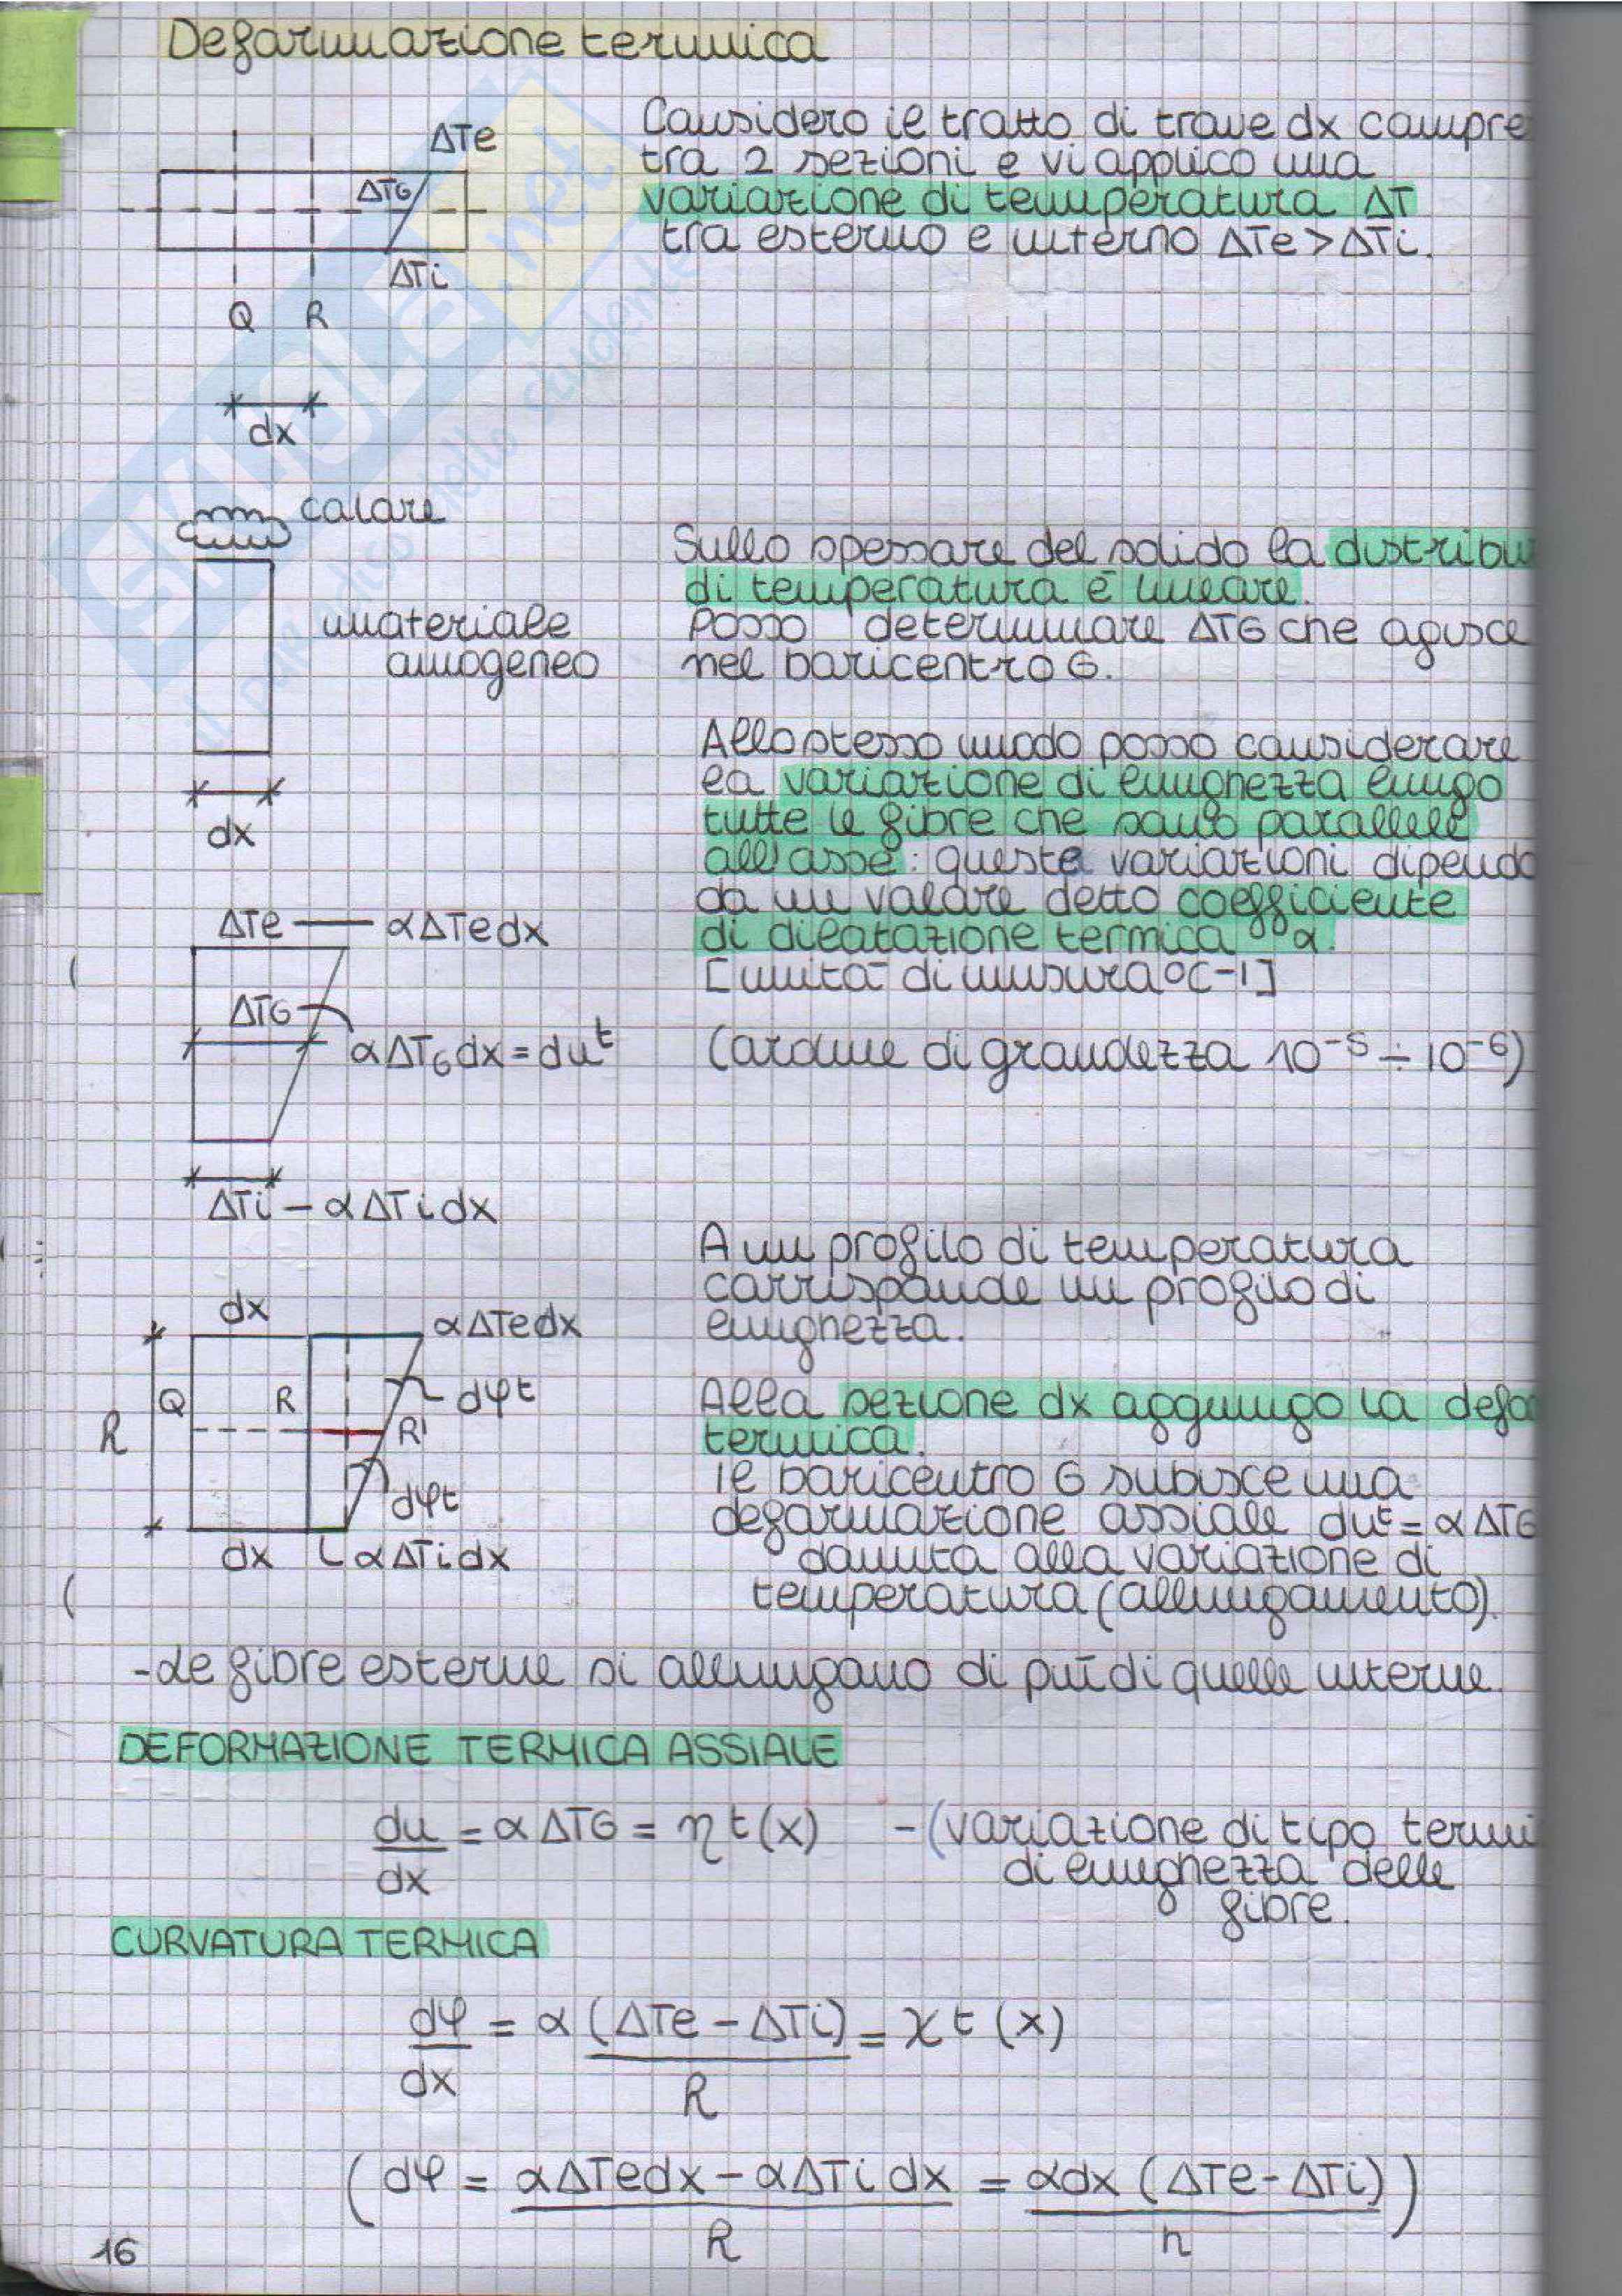 Deformazione termica
Considero il tratto di trave dx compre
tra 2 sezioni e vi applico una
variazione di temperatura ΔT
tra esterno e interno ΔTe > ΔTi.
ΔTe
ΔTG
ΔTi
Q R
dx
calore
materiale
omogeneo
dx
Sullo spessore del solido la distribu
di temperatura è lineare.
Posso determinare ΔTG che agisce
nel baricentro G.
Allo stesso modo posso considerare
la variazione di lunghezza lungo
tutte le fibre che sono parallele
all'asse: queste variazioni dipendo
da un valore detto coefficiente
di dilatazione termica α.
[unità di misura °C-1]
(ordine di grandezza 10⁻⁵ ÷ 10⁻⁶)
ΔTe — αΔTedx
ΔTG
αΔTGdx = duᵗ
ΔTi – αΔTidx
A un profilo di temperatura
corrisponde un profilo di
lunghezza.
dx
αΔTedx
Q R dφt
h R'
dφt
dx αΔTidx
Alla sezione dx aggiungo la defo
termica.
Il baricentro G subisce una
deformazione assiale duᵗ = αΔTG
dovuta alla variazione di
temperatura (allungamento).
- Le fibre esterne si allungano di più di quelle interne.
DEFORMAZIONE TERMICA ASSIALE
du/dx = αΔTG = ηt(x) - (variazione di tipo termi
di lunghezza delle
fibre.
CURVATURA TERMICA
dφ/dx = α (ΔTe - ΔTi)/h = χt (x)
(dφ = αΔTedx - αΔTidx/h = αdx (ΔTe - ΔTi)/h)
16
SKUOLA.net
il paradiso dello studente